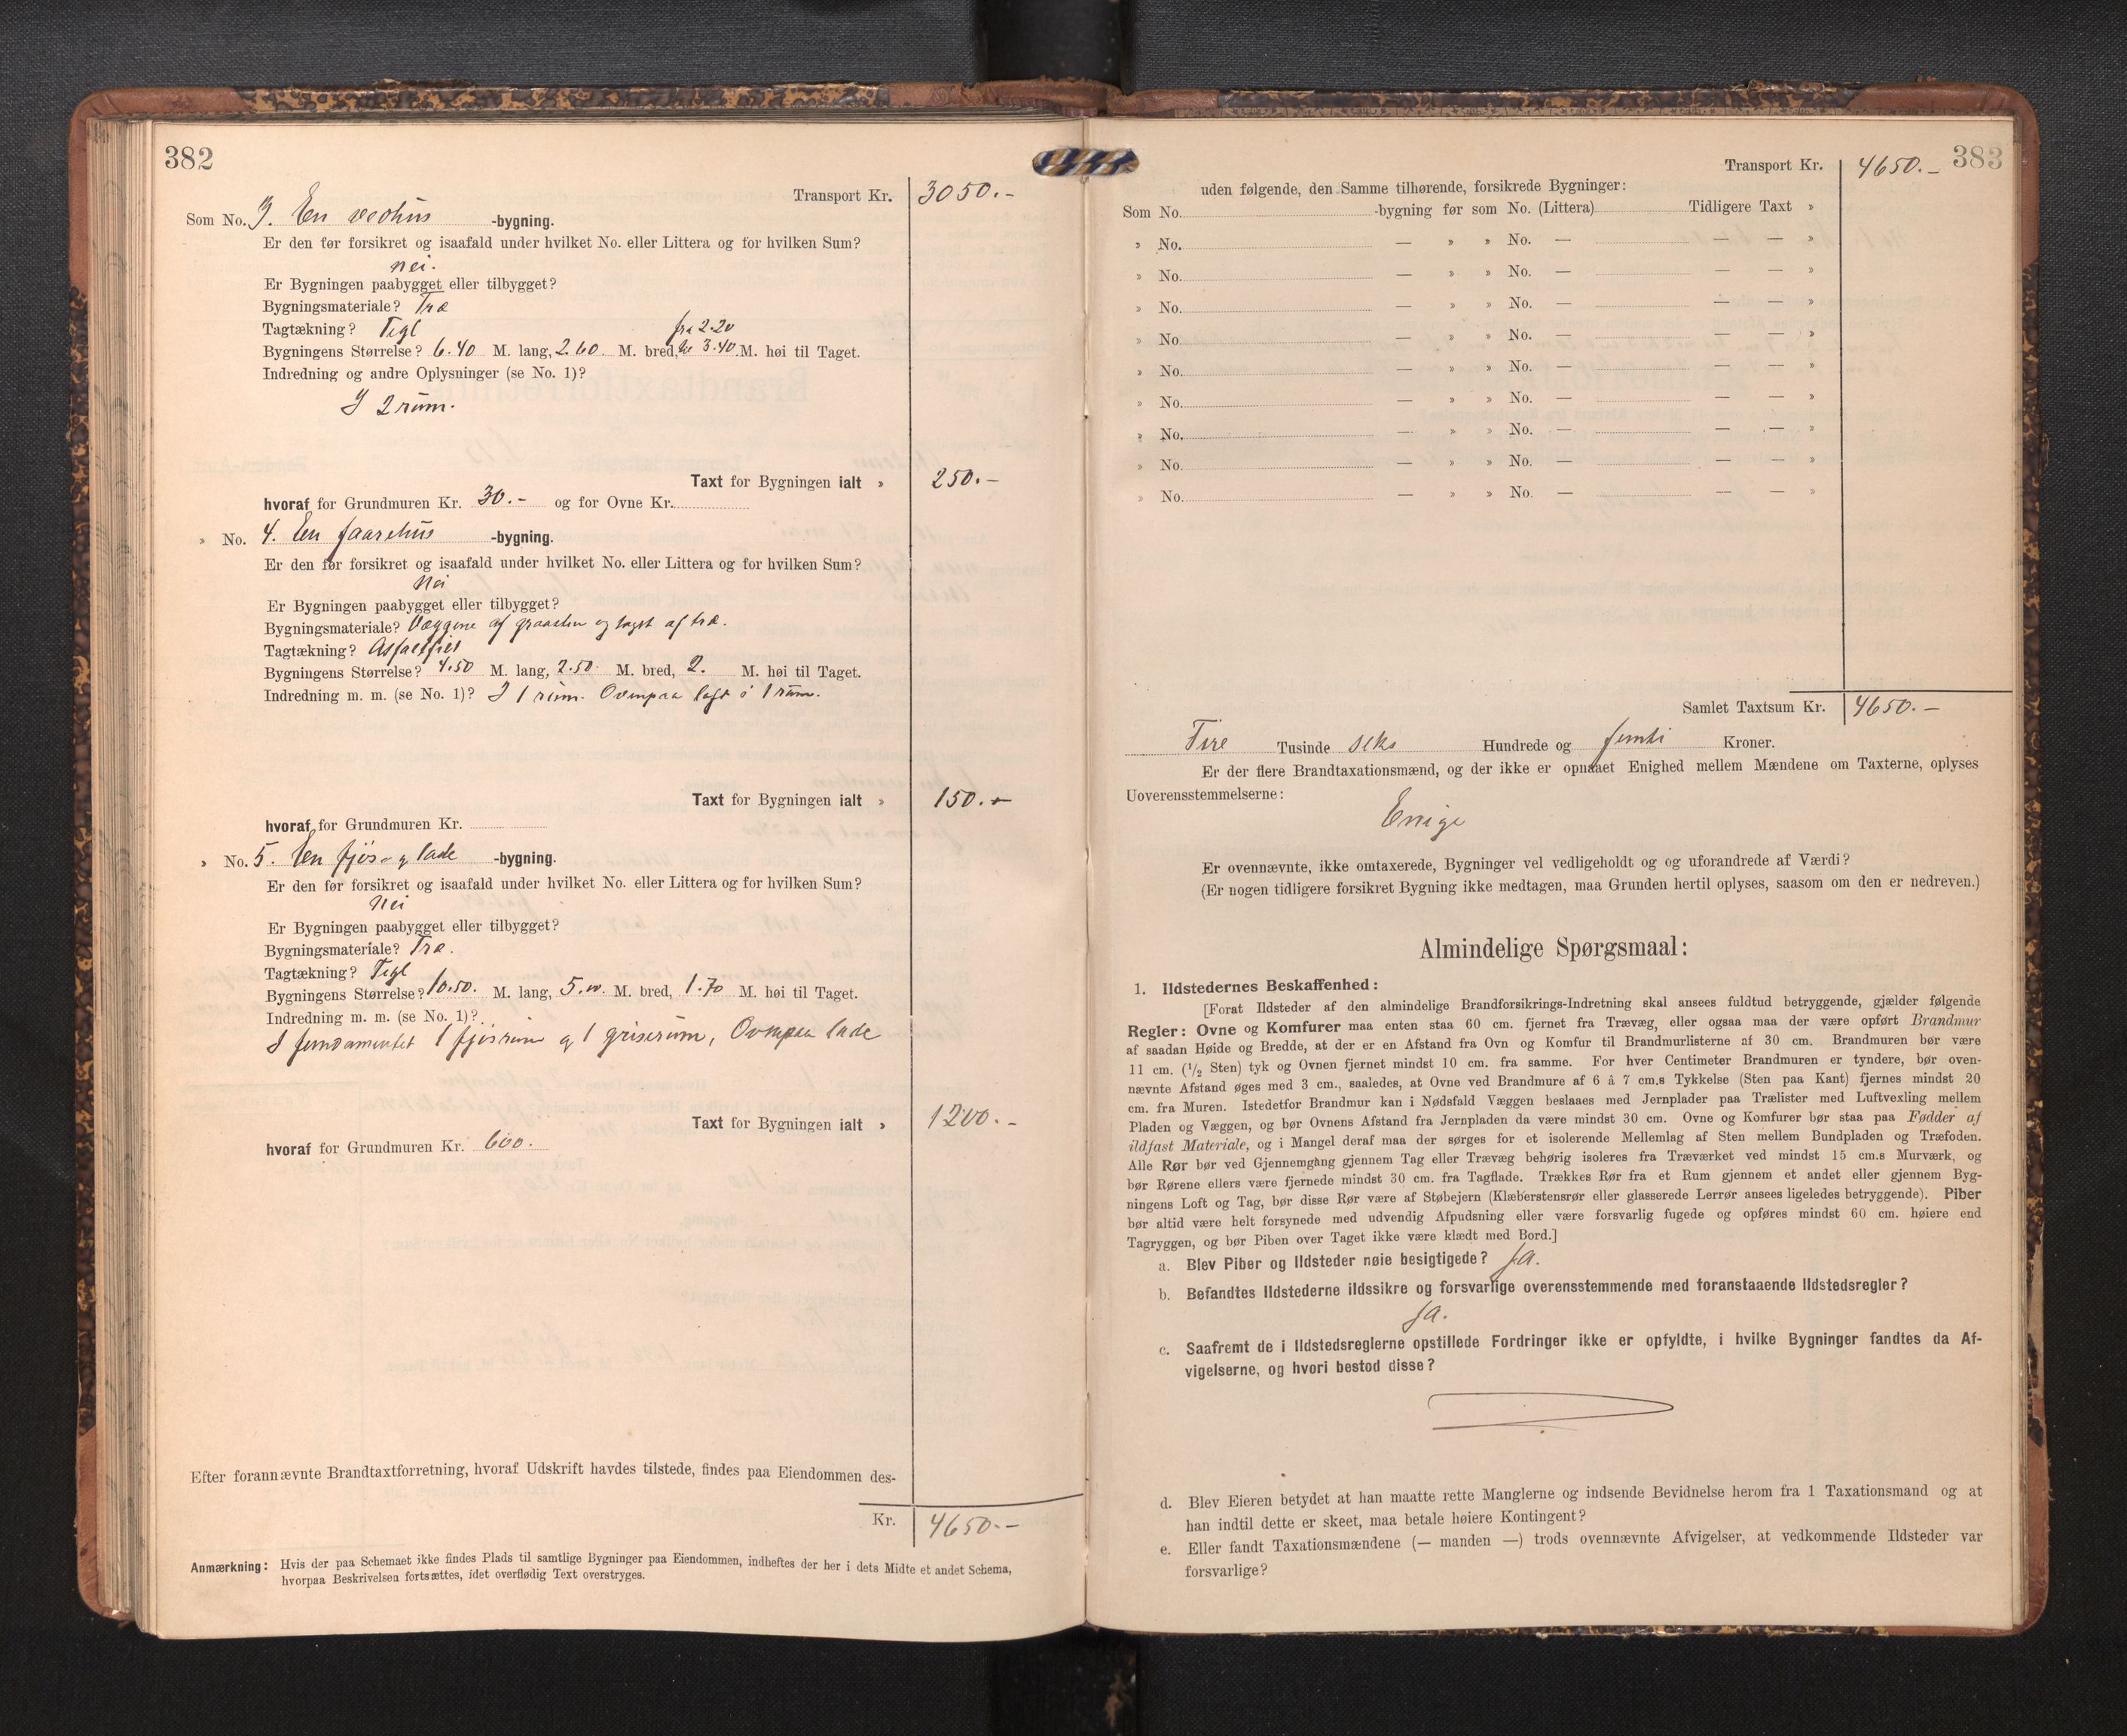 382
Transport Kr. 3050.-
Som No. 3. En vedhus -bygning.
Er den før forsikret og isaafald under hvilket No. eller Littera og for hvilken Sum?
nei.
Er Bygningen paabygget eller tilbygget?
Bygningsmateriale? Træ
Tagtækning? Tegl
fra 2.20
Bygningens Størrelse? 6.40 M. lang, 2.60 M. bred, til 3.40 M. høi til Taget.
Indredning og andre Oplysninger (se No. 1)?
I 2 rum.
Taxt for Bygningen ialt » 250.-
hvoraf for Grundmuren Kr. 30.- og for Ovne Kr.
» No. 4. En faarehus -bygning.
Er den før forsikret og isaafald under hvilket No. eller Littera og for hvilken Sum?
Nei
Er Bygningen paabygget eller tilbygget?
Bygningsmateriale? Væggene af graasten og taget af træ.
Tagtækning? Asfaltfilt
Bygningens Størrelse? 4.50 M. lang, 2.50 M. bred, 2. M. høi til Taget.
Indredning m. m. (se No. 1)? I 1 rum. Ovenpaa lagt i 1 rum.
Taxt for Bygningen ialt » 150.-
hvoraf for Grundmuren Kr.
» No. 5. En fjøs- og lade -bygning.
Er den før forsikret og isaafald under hvilket No. eller Littera og for hvilken Sum?
Nei
Er Bygningen paabygget eller tilbygget?
Bygningsmateriale? Træ.
Tagtækning? Tegl
Bygningens Størrelse? 10.50. M. lang, 5.00. M. bred, 1.70 M. høi til Taget.
Indredning m. m. (se No. 1)?
I fundamentet 1 fjøsrum og 1 griserum, Ovenpaa lade
Taxt for Bygningen ialt » 1200.-
hvoraf for Grundmuren Kr. 600.
Efter forannævnte Brandtaxtforretning, hvoraf Udskrift havdes tilstede, findes paa Eiendommen des-
Kr. 4650.-
Anmærkning: Hvis der paa Schemaet ikke findes Plads til samtlige Bygninger paa Eiendommen, indheftes der her i dets Midte et andet Schema,
hvorpaa Beskrivelsen fortsættes, idet overflødig Text overstryges.
383
Transport Kr. 4650.-
uden følgende, den Samme tilhørende, forsikrede Bygninger:
Som No. -bygning før som No. (Littera) Tidligere Taxt »
» No. — » » No. — — — »
» No. — » » No. — — — »
» No. — » » No. — — — »
» No. — » » No. — — — »
» No. — » » No. — — — »
» No. — » » No. — — — »
» No. — » » No. — — — »
» No. — » » No. — — — »
» No. — » » No. — — — »
Samlet Taxtsum Kr. 4650.-
Fire Tusinde seks Hundrede og femti Kroner.
Er der flere Brandtaxationsmænd, og der ikke er opnaaet Enighed mellem Mændene om Taxterne, oplyses
Uoverensstemmelserne:
Enige
Er ovennævnte, ikke omtaxerede, Bygninger vel vedligeholdt og og uforandrede af Værdi?
(Er nogen tidligere forsikret Bygning ikke medtagen, maa Grunden hertil oplyses, saasom om den er nedreven.)
Almindelige Spørgsmaal:
1. Ildstedernes Beskaffenhed:
[Forat Ildsteder af den almindelige Brandforsikrings-Indretning skal ansees fuldtud betryggende, gjælder følgende
Regler: Ovne og Komfurer maa enten staa 60 cm. fjernet fra Trævæg, eller ogsaa maa der være opført Brandmur
af saadan Høide og Bredde, at der er en Afstand fra Ovn og Komfur til Brandmurlisterne af 30 cm. Brandmuren bør være
11 cm. (1/2 Sten) tyk og Ovnen fjernet mindst 10 cm. fra samme. For hver Centimeter Brandmuren er tyndere, bør oven-
nævnte Afstand øges med 3 cm., saaledes, at Ovne ved Brandmure af 6 à 7 cm.s Tykkelse (Sten paa Kant) fjernes mindst 20
cm. fra Muren. Istedetfor Brandmur kan i Nødsfald Væggen beslaaes med Jernplader paa Trælister med Luftvexling mellem
Pladen og Væggen, og bør Ovnens Afstand fra Jernpladen da være mindst 30 cm. Ovne og Komfurer bør staa paa Fødder af
ildfast Materiale, og i Mangel deraf maa der sørges for et isolerende Mellemlag af Sten mellem Bundpladen og Træfoden.
Alle Rør bør ved Gjennemgang gjennem Tag eller Trævæg behørig isoleres fra Træværket ved mindst 15 cm.s Murværk, og
bør Rørene ellers være fjernede mindst 30 cm. fra Tagflade. Trækkes Rør fra et Rum gjennem et andet eller gjennem Byg-
ningens Loft og Tag, bør disse Rør være af Støbejern (Klæberstensrør eller glasserede Lerrør ansees ligeledes betryggende). Piber
bør altid være helt forsynede med udvendig Afpudsning eller være forsvarlig fugede og opføres mindst 60 cm. høiere end
Tagryggen, og bør Piben over Taget ikke være klædt med Bord.]
a. Blev Piber og Ildsteder nøie besigtigede? Ja.
b. Befandtes Ildstederne ildssikre og forsvarlige overensstemmende med foranstaaende Ildstedsregler?
Ja.
c. Saafremt de i Ildstedsreglerne opstillede Fordringer ikke er opfyldte, i hvilke Bygninger fandtes da Af-
vigelserne, og hvori bestod disse?
d. Blev Eieren betydet at han maatte rette Manglerne og indsende Bevidnelse herom fra 1 Taxationsmand og at
han indtil dette er skeet, maa betale høiere Kontingent?
e. Eller fandt Taxationsmændene (— manden —) trods ovennævnte Afvigelser, at vedkommende Ildsteder var
forsvarlige?